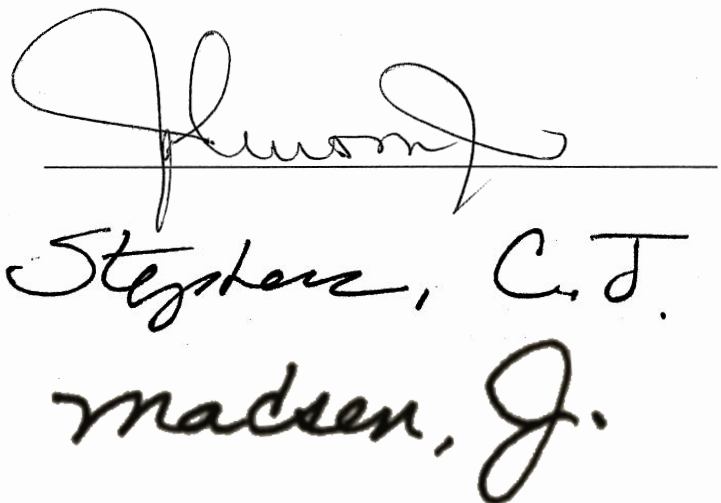 Stephens, C.J.
Madsen, J.